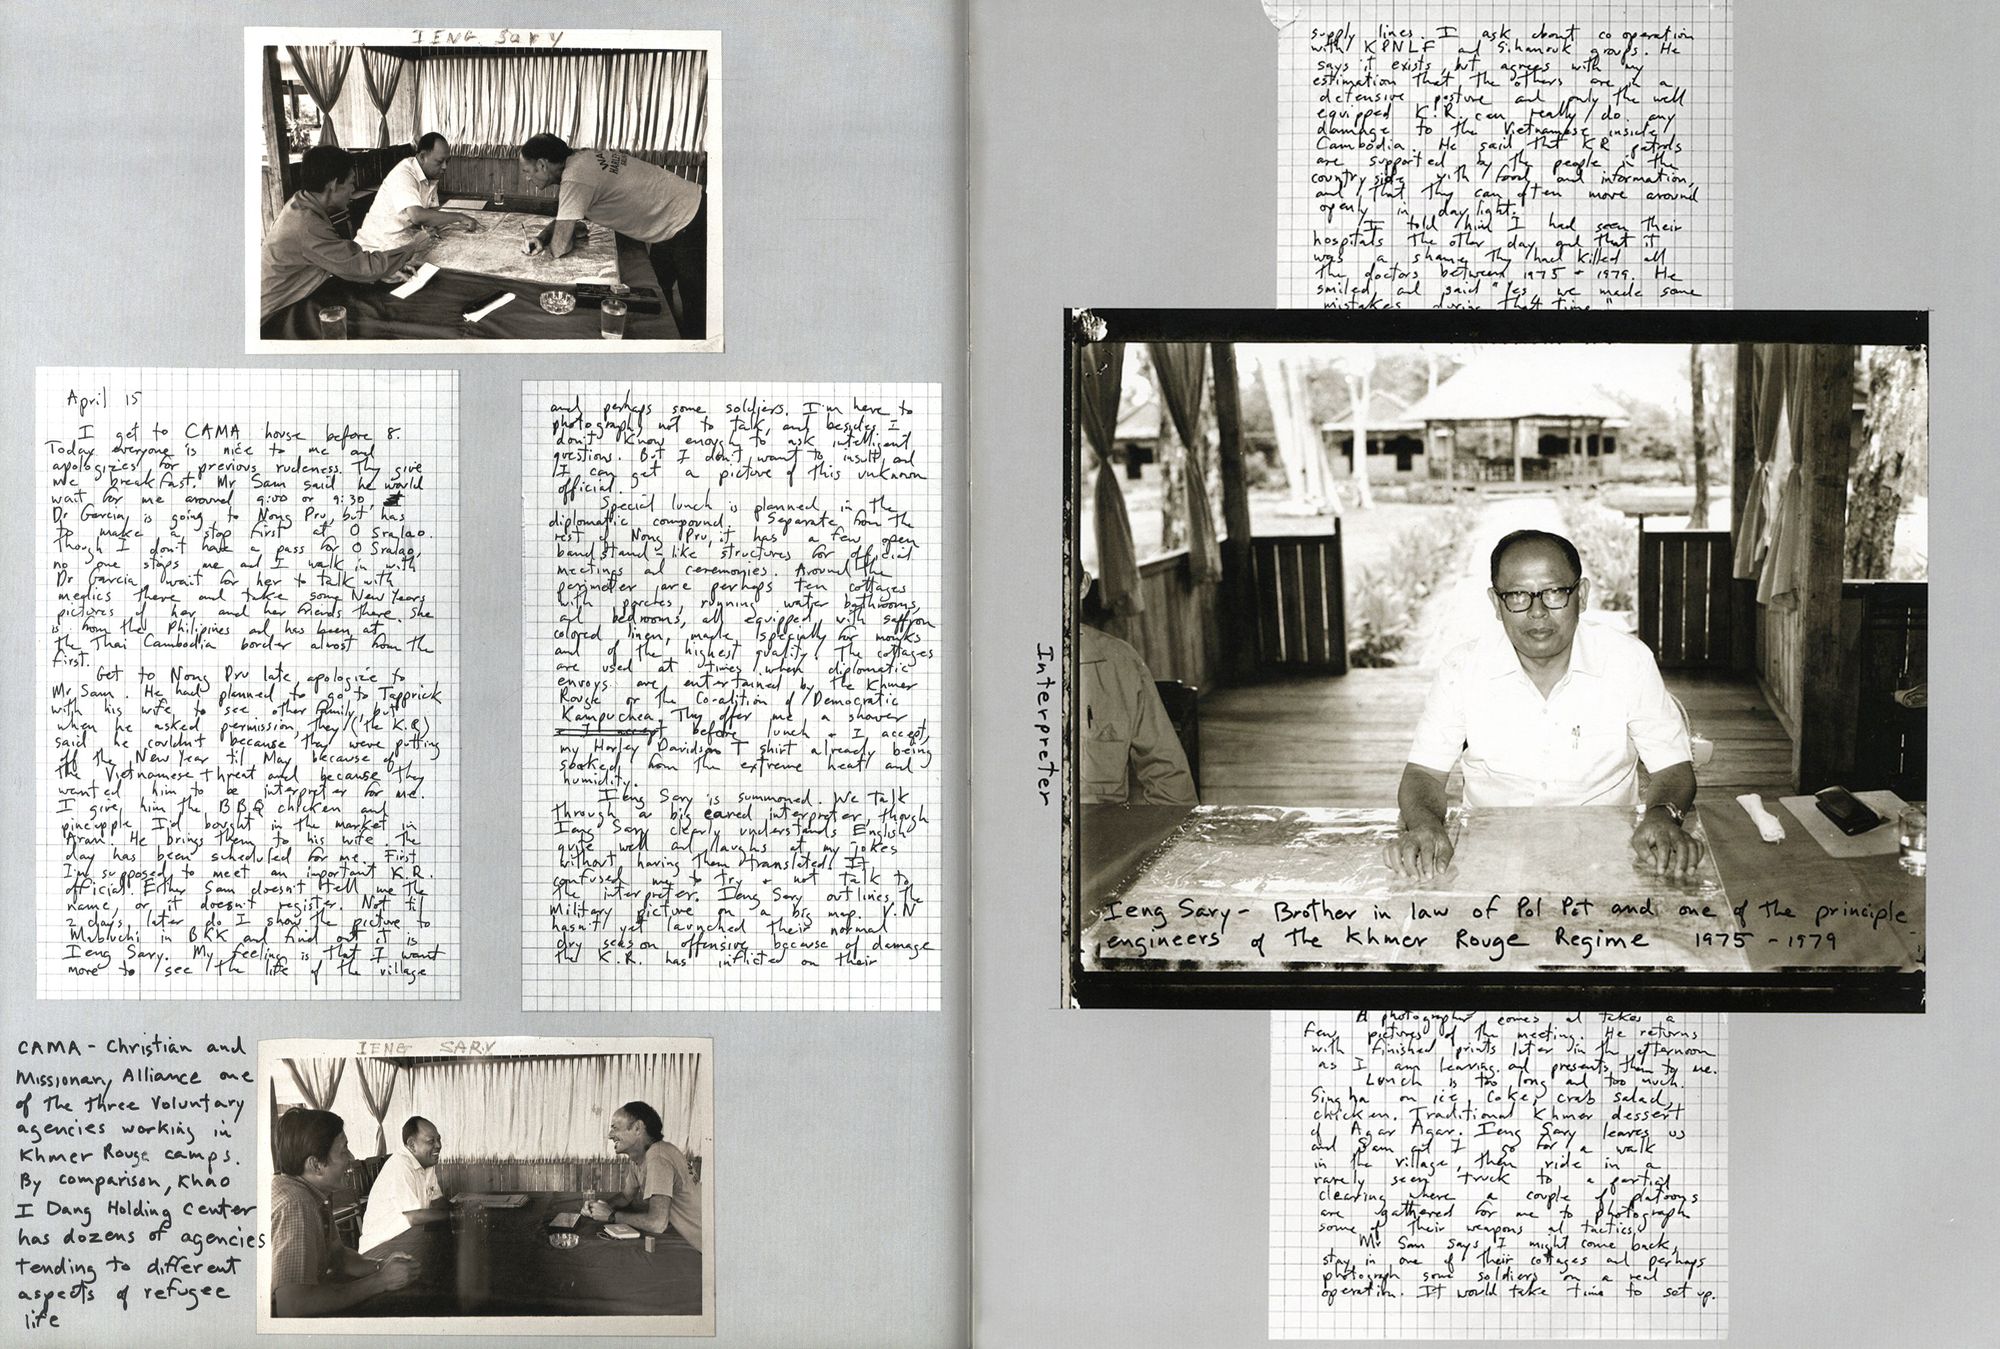 IENG SARY
April 15
I get to CAMA house before 8.
Today everyone is nice to me and
apologizes for previous rudeness. They give
me breakfast. Mr Sam said he would
wait for me around 9:00 or 9:30
Dr Garcia is going to Nong Pru, but has
to make a stop first at O Sralao.
Though I don't have a pass for O Sralao,
no one stops me and I walk in with
Dr Garcia, wait for her to talk with
medics there and take some New Years
pictures of her and her friends there. She
is from the Philipines and has been at
the Thai Cambodia border almost from the
first.
Get to Nong Pru late, apologize to
Mr Sam. He had planned to go to Tapprick
with his wife to see other family, but
when he asked permission, they (the K.R.)
said he couldn't because they were putting
off the New Year til May because of
the Vietnamese threat and because they
wanted him to be interpreter for me.
I give him the BBQ chicken and
pineapple I'd bought in the market in
Aran. He brings them to his wife. The
day has been scheduled for me. First
I'm supposed to meet an important K.R.
official. Either Sam doesn't tell me the
name, or it doesn't register. Not til
2 days later do I show the picture to
Mabuchi in BKK and find out it is
Ieng Sary. My feeling is that I want
more to see the life of the village
and perhaps some soldiers. I'm here to
photograph not to talk, and besides I
don't know enough to ask intelligent
questions. But I don't want to insult and
I can get a picture of this unknown
official.
Special lunch is planned in the
diplomatic compound. Separate from the
rest of Nong Pru, it has a few open
bandstand-like structures for official
meetings and ceremonies. Around the
perimeter are perhaps ten cottages
with porches, running water bathrooms,
and bedrooms, all equipped with saffron
colored linen, made specially for monks
and of the highest quality. The cottages
are used at times when diplomatic
envoys are entertained by the Khmer
Rouge or the Coalition of Democratic
Kampuchea. They offer me a shower
before lunch + I accept,
my Harley Davidson T shirt already being
soaked from the extreme heat and
humidity.
Ieng Sary is summoned. We talk
through a big eared interpreter, though
Ieng Sary clearly understands English
quite well and laughs at my jokes
without having them translated. It
confused me to try + not talk to
the interpreter. Ieng Sary outlines the
military picture on a big map. V.N
hasn't yet launched their normal
dry season offensive because of damage
the K.R. has inflicted on their
CAMA - Christian and
Missionary Alliance one
of the three voluntary
agencies working in
Khmer Rouge camps.
By comparison, Khao
I Dang Holding Center
has dozens of agencies
tending to different
aspects of refugee
life
IENG SARY
supply lines. I ask about co operation
with KPNLF and Sihanouk groups. He
says it exists, but agrees with my
estimation that the others are in a
defensive posture and only the well
equipped K.R. can really do any
damage to the Vietnamese inside
Cambodia. He said that KR patrols
are supported by the people in the
country side with food and information,
and that they can often move around
openly in daylight.
I told him I had seen their
hospitals the other day and that it
was a shame they had killed all
the doctors between 1975 + 1979. He
smiled and said "Yes we made some
mistakes during that time"
Interpreter
Ieng Sary - Brother in law of Pol Pot and one of the principle
engineers of the Khmer Rouge Regime 1975 - 1979
A photographer comes and takes a
few pictures of the meeting. He returns
with finished prints later in the afternoon
as I am leaving and presents them to me.
Lunch is too long and too much.
Singha on ice, Coke, crab salad,
chicken. Traditional Khmer dessert
of Agar Agar. Ieng Sary leaves us
and Sam and I go for a walk
in the village, then ride in a
rarely seen truck to a partial
clearing where a couple of platoons
are gathered for me to photograph
some of their weapons and tactics.
Mr Sam says I might come back,
stay in one of their cottages and perhaps
photograph some soldiers on a real
operation. It would take time to set up.